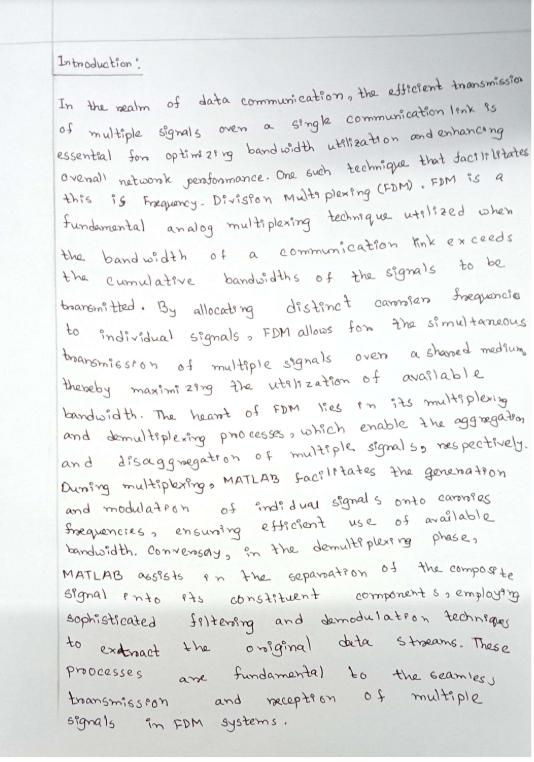 Introduction:
In the realm of data communication, the efficient transmission
of multiple signals over a single communication link is
essential for optimizing bandwidth utilization and enhancing
overall network performance. One such technique that facilitates
this is Frequency-Division Multiplexing (FDM). FDM is a
fundamental analog multiplexing technique utilized when
the bandwidth of a communication link exceeds
the cumulative bandwidths of the signals to be
transmitted. By allocating distinct carrier frequencies
to individual signals, FDM allows for the simultaneous
transmission of multiple signals over a shared medium,
thereby maximizing the utilization of available
bandwidth. The heart of FDM lies in its multiplexing
and demultiplexing processes, which enable the aggregation
and disaggregation of multiple signals, respectively.
During multiplexing, MATLAB facilitates the generation
and modulation of individual signals onto carrier
frequencies, ensuring efficient use of available
bandwidth. Conversely, in the demultiplexing phase,
MATLAB assists in the separation of the composite
signal into its constituent components, employing
sophisticated filtering and demodulation techniques
to extract the original data streams. These
processes are fundamental to the seamless
transmission and reception of multiple
signals in FDM systems.